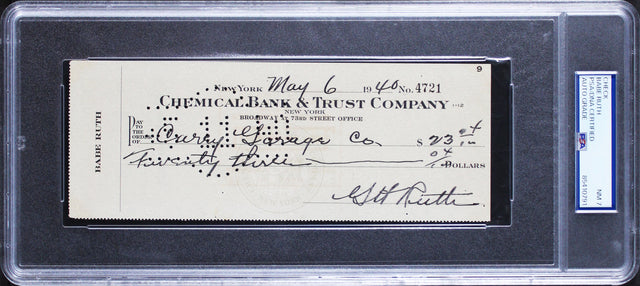 9
New York May 6 1940 No. 4721
CHEMICAL BANK & TRUST COMPANY 1-12
NEW YORK
BROADWAY AT 73RD STREET OFFICE
PAY TO THE ORDER OF Curry Garage Co. $23 04/100
Twenty three 04/ DOLLARS
G H Ruth
BABE RUTH
NEW YORK
CHECK
BABE RUTH
PSA/DNA CERTIFIED
AUTO GRADE
PSA
NM 7
85430791